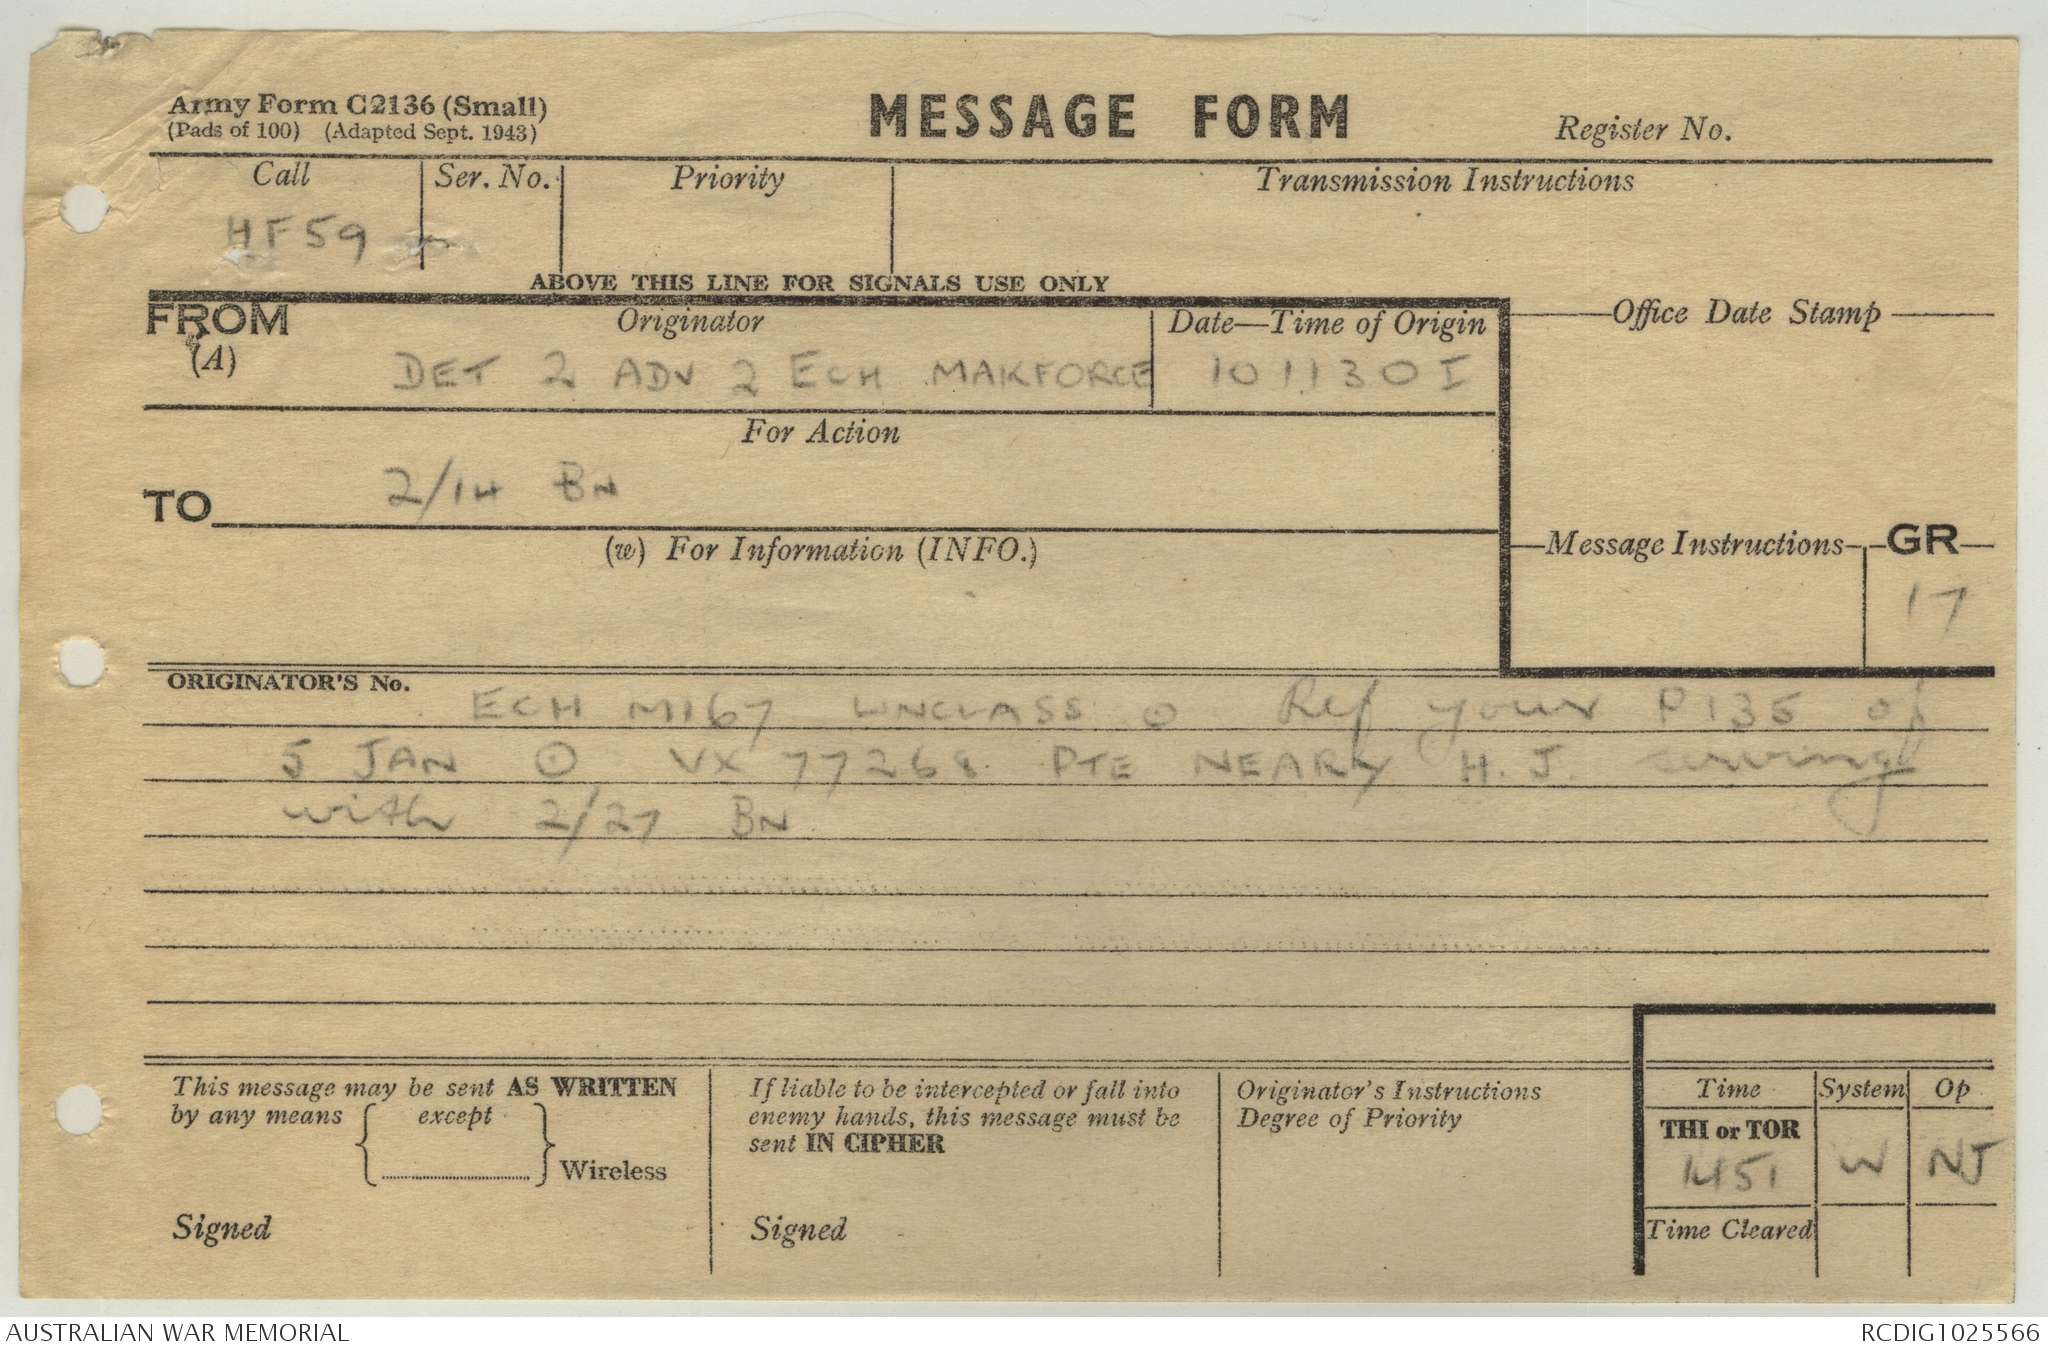 Army Form C2136 (Small)
(Pads of 100) (Adapted Sept. 1943)
MESSAGE FORM
Register No.
Call
Ser. No.
Priority
Transmission Instructions
HF59
ABOVE THIS LINE FOR SIGNALS USE ONLY
FROM
(A)
Originator
Date—Time of Origin
Office Date Stamp
DET 2 ADV 2 ECH MAKFORCE
101130 I
For Action
TO
2/14 BN
(w) For Information (INFO.)
Message Instructions
GR
17
ORIGINATOR'S No.
ECH M167 UNCLASS ⊙ Ref your P135 of
5 JAN ⊙ VX 77268 PTE NEARY H.J. serving
with 2/27 BN
This message may be sent AS WRITTEN
by any means { except } Wireless
Signed
If liable to be intercepted or fall into
enemy hands, this message must be
sent IN CIPHER
Signed
Originator's Instructions
Degree of Priority
Time
System
Op
THI or TOR
1451
W
NJ
Time Cleared
AUSTRALIAN WAR MEMORIAL
RCDIG1025566